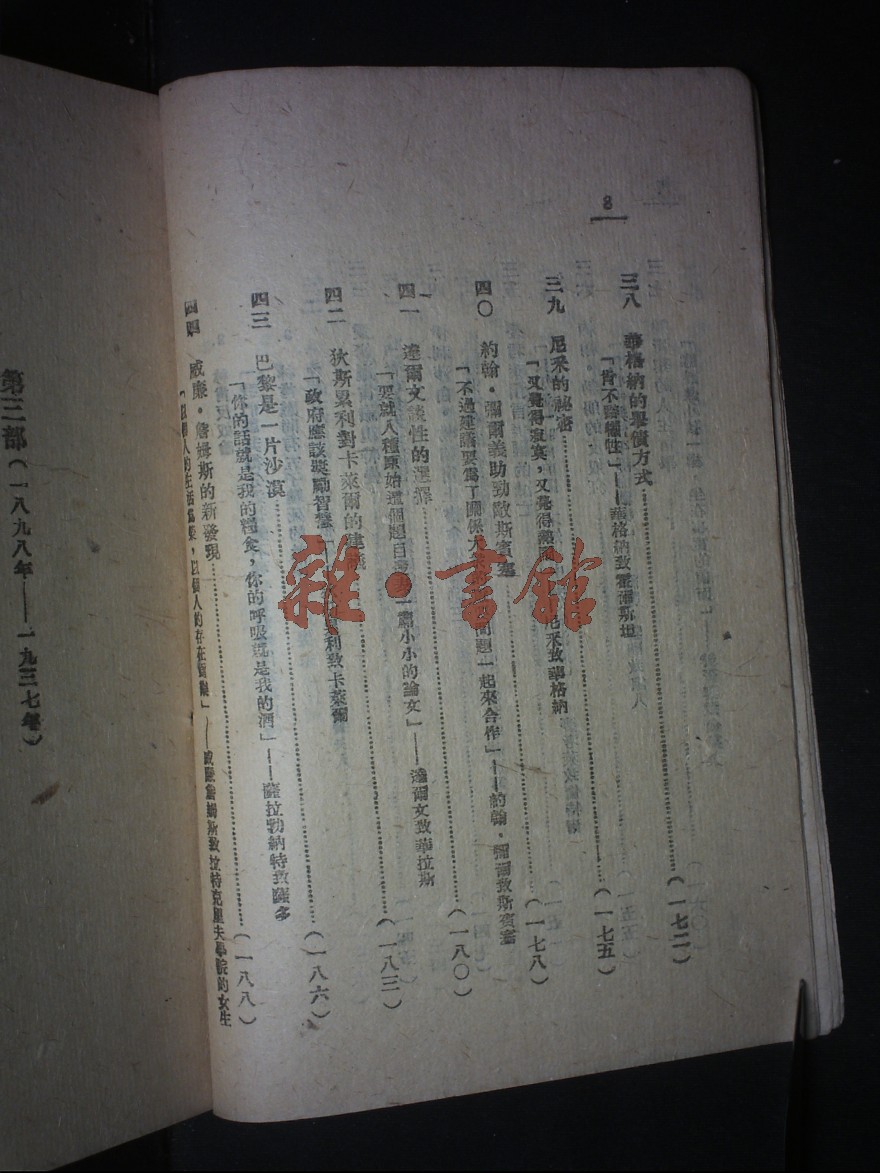 8
三八 華格納的舉債方式 (一七二)
「肯不犧牲」——華格納致霍爾斯坦
三九 尼采的祕密 (一七五)
「又覺得寂寞，又覺得熱 尼采致華格納
四〇 約翰·彌爾義助勁敵斯賓塞 (一七八)
「不過建議要爲了關係 問題一起來合作」——約翰·彌爾致斯賓塞
四一 達爾文談性的選擇 (一八〇)
「要就人種原始這個題目 一篇小小的論文」——達爾文致華拉斯
四二 狄斯累利對卡萊爾的建議 (一八三)
「政府應該獎勵智慧」 利致卡萊爾
四三 巴黎是一片沙漠 (一八六)
「你的話就是我的糧食，你的呼吸就是我的酒」——薩拉勃納特致薩多
四四 威廉·詹姆斯的新發現 (一八八)
人的生活爲樂，以個人的存在爲樂」——威廉詹姆斯致拉特克里夫學院的女生
第三部(一八九八年——一九三七年)
雜·書館